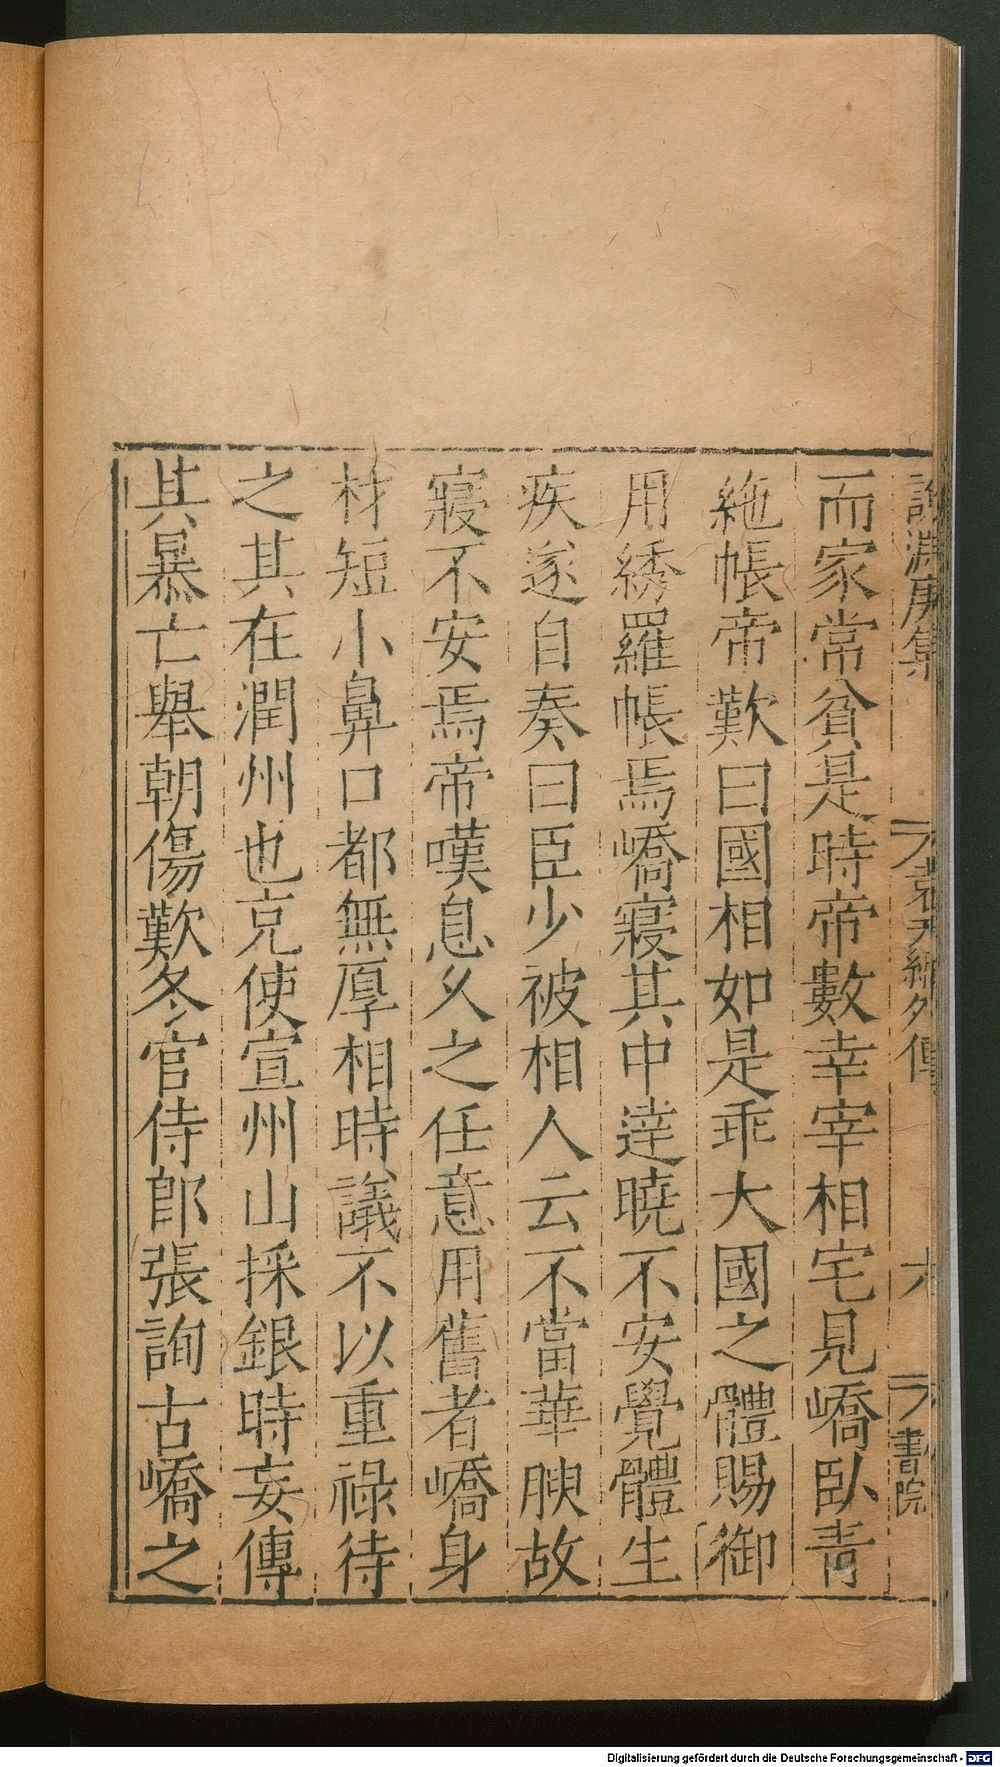 說淵庚集 袁天綱外傳 六 書院
而家常貧是時帝數幸宰相宅見嶠臥青
絁帳帝歎曰國相如是乖大國之體賜御
用綉羅帳焉嶠寢其中達曉不安覺體生
疾遂自奏曰臣少被相人云不當華腴故
寢不安焉帝嘆息久之任意用舊者嶠身
材短小鼻口都無厚相時議不以重祿待
之其在潤州也充使宣州山採銀時妄傳
其暴亡舉朝傷歎冬官侍郎張詢古嶠之
Digitalisierung gefördert durch die Deutsche Forschungsgemeinschaft - DFG